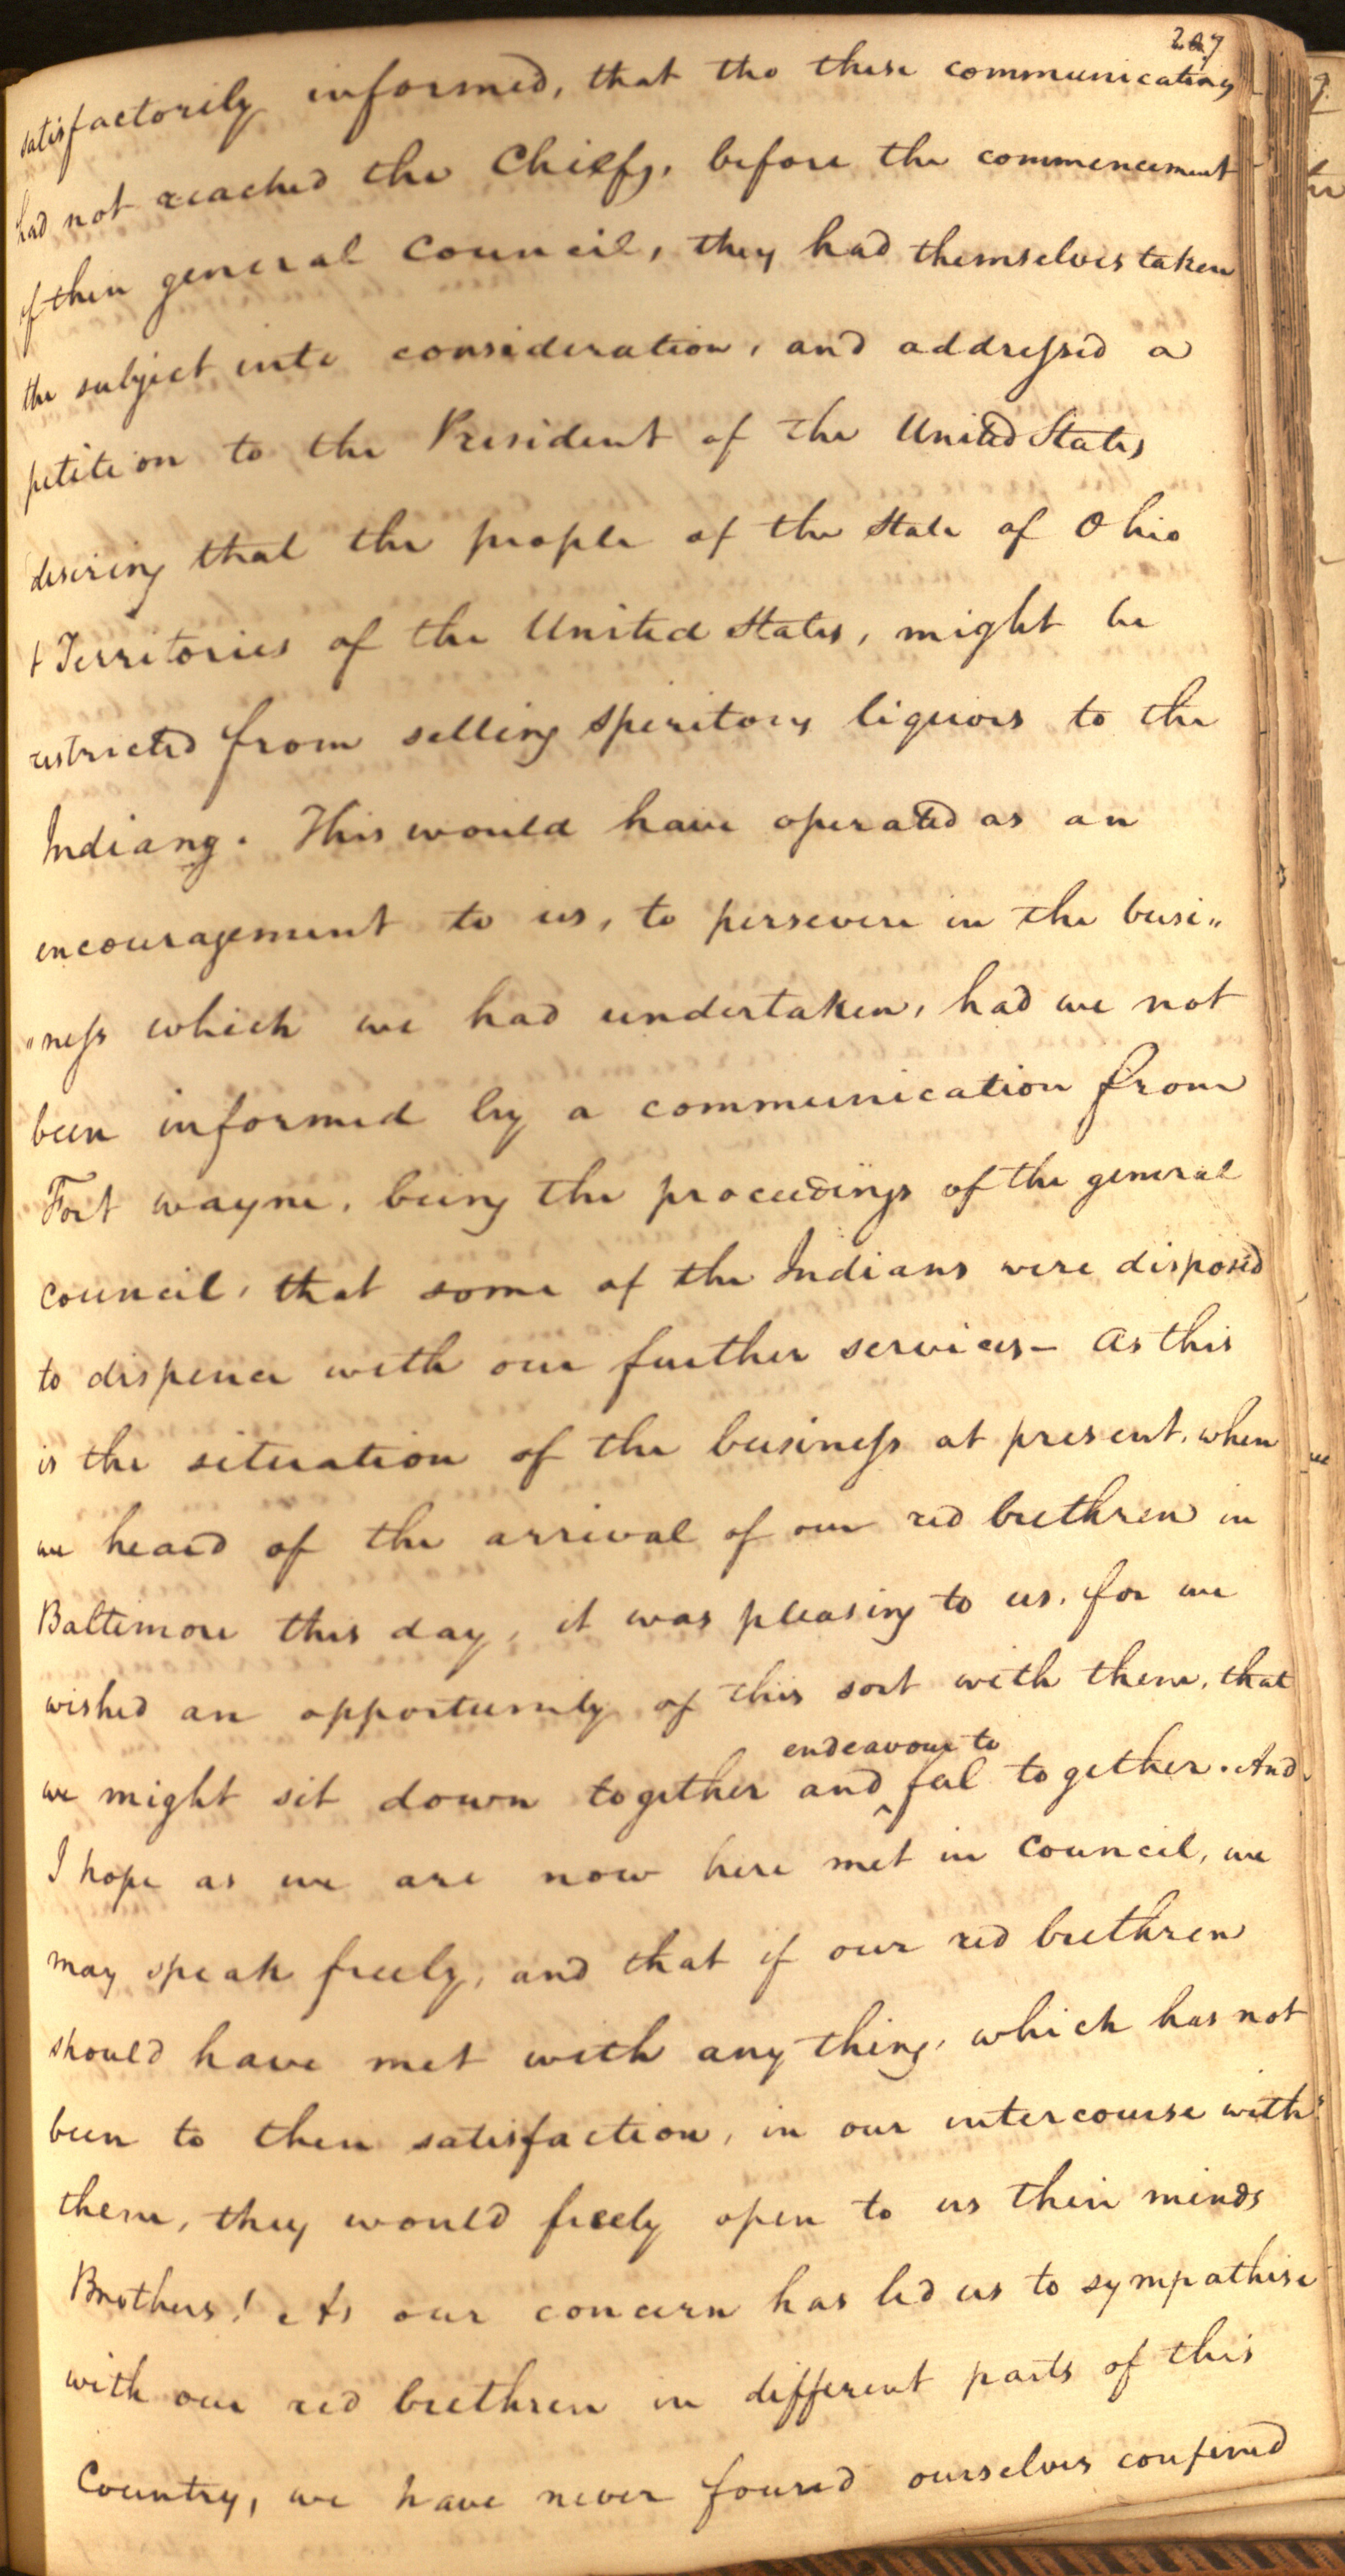 207
satisfactorily informed, that tho these communications
had not reached the Chiefs, before the commencement
of their general Council, they had themselves taken
the subject into consideration, and addressed a
petition to the President of the United States
desiring that the people of the State of Ohio
& Territories of the United States, might be
restricted from selling spiritous liquors to the
Indians. This would have operated as an
encouragement to us, to persevere in the busi„
„ness which we had undertaken, had we not
been informed by a communication from
Fort wayne, being the proceedings of the general
council, that some of the Indians were disposed
to dispence with our further services— As this
is the situation of the business at present, when
we heard of the arrival of our red brethren in
Baltimore this day, it was pleasing to us, for we
wished an opportunity of this sort with them, that
endeavour to
we might sit down together and ‸ feel together. And
I hope as we are now here met in Council, we
may speak freely, and that if our red brethren
should have met with any thing, which has not
been to their satisfaction, in our intercourse with
them, they would freely open to us their minds
Brothers! As our concern has led us to sympathise
with our red brethren in different parts of this
Country, we have never found ourselves confined